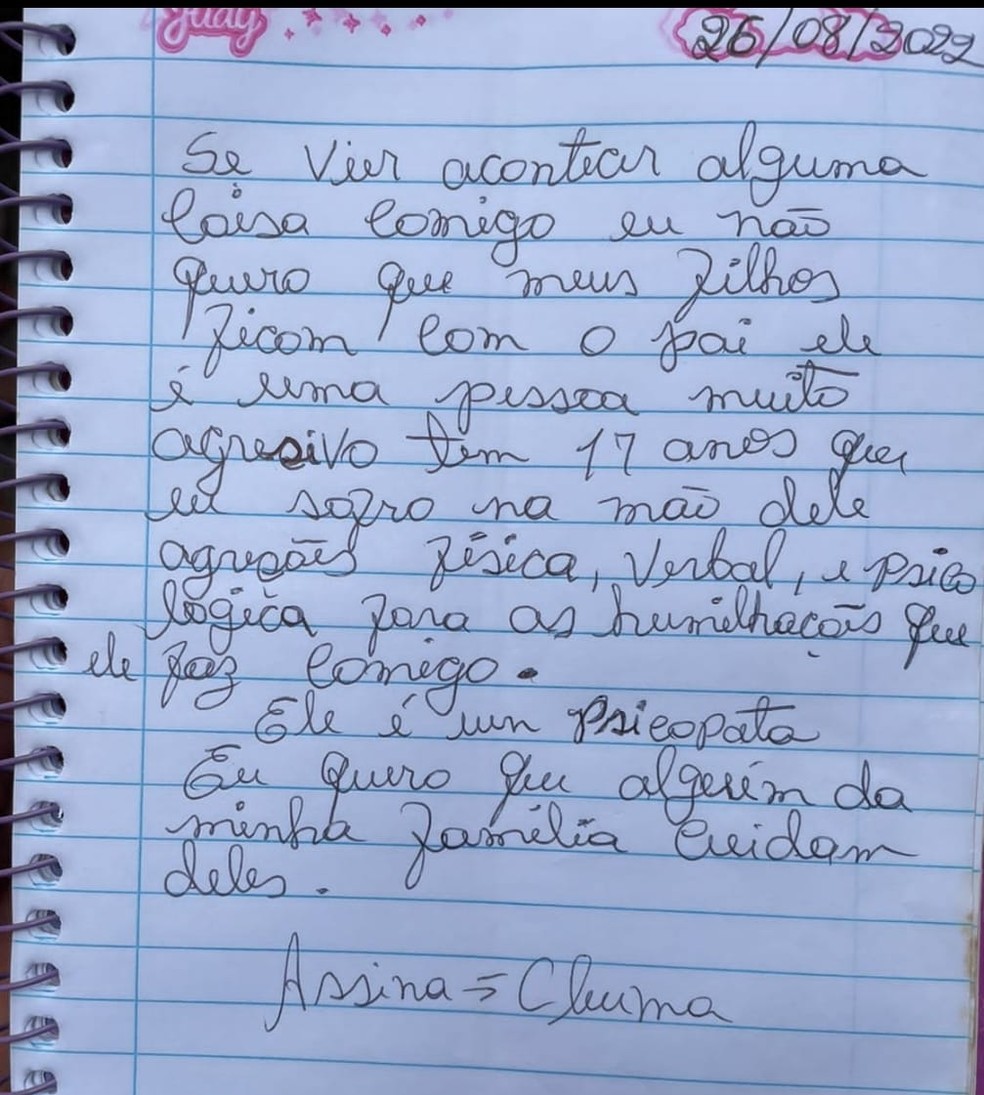 Judy
26/08/2022
Se Vier acontecer alguma
Coisa Comigo eu não
quero que meus filhos
ficam com o pai ele
é uma pessoa muito
agresivo tem 17 anos que
eu sofro na mão dele
agresões física, Verbal, e psico
lógica fora as humilhações que
ele faz Comigo.
Ele é um Psicopata
Eu quero que alguém da
minha família Cuidam
deles.
Assina = Cleuma